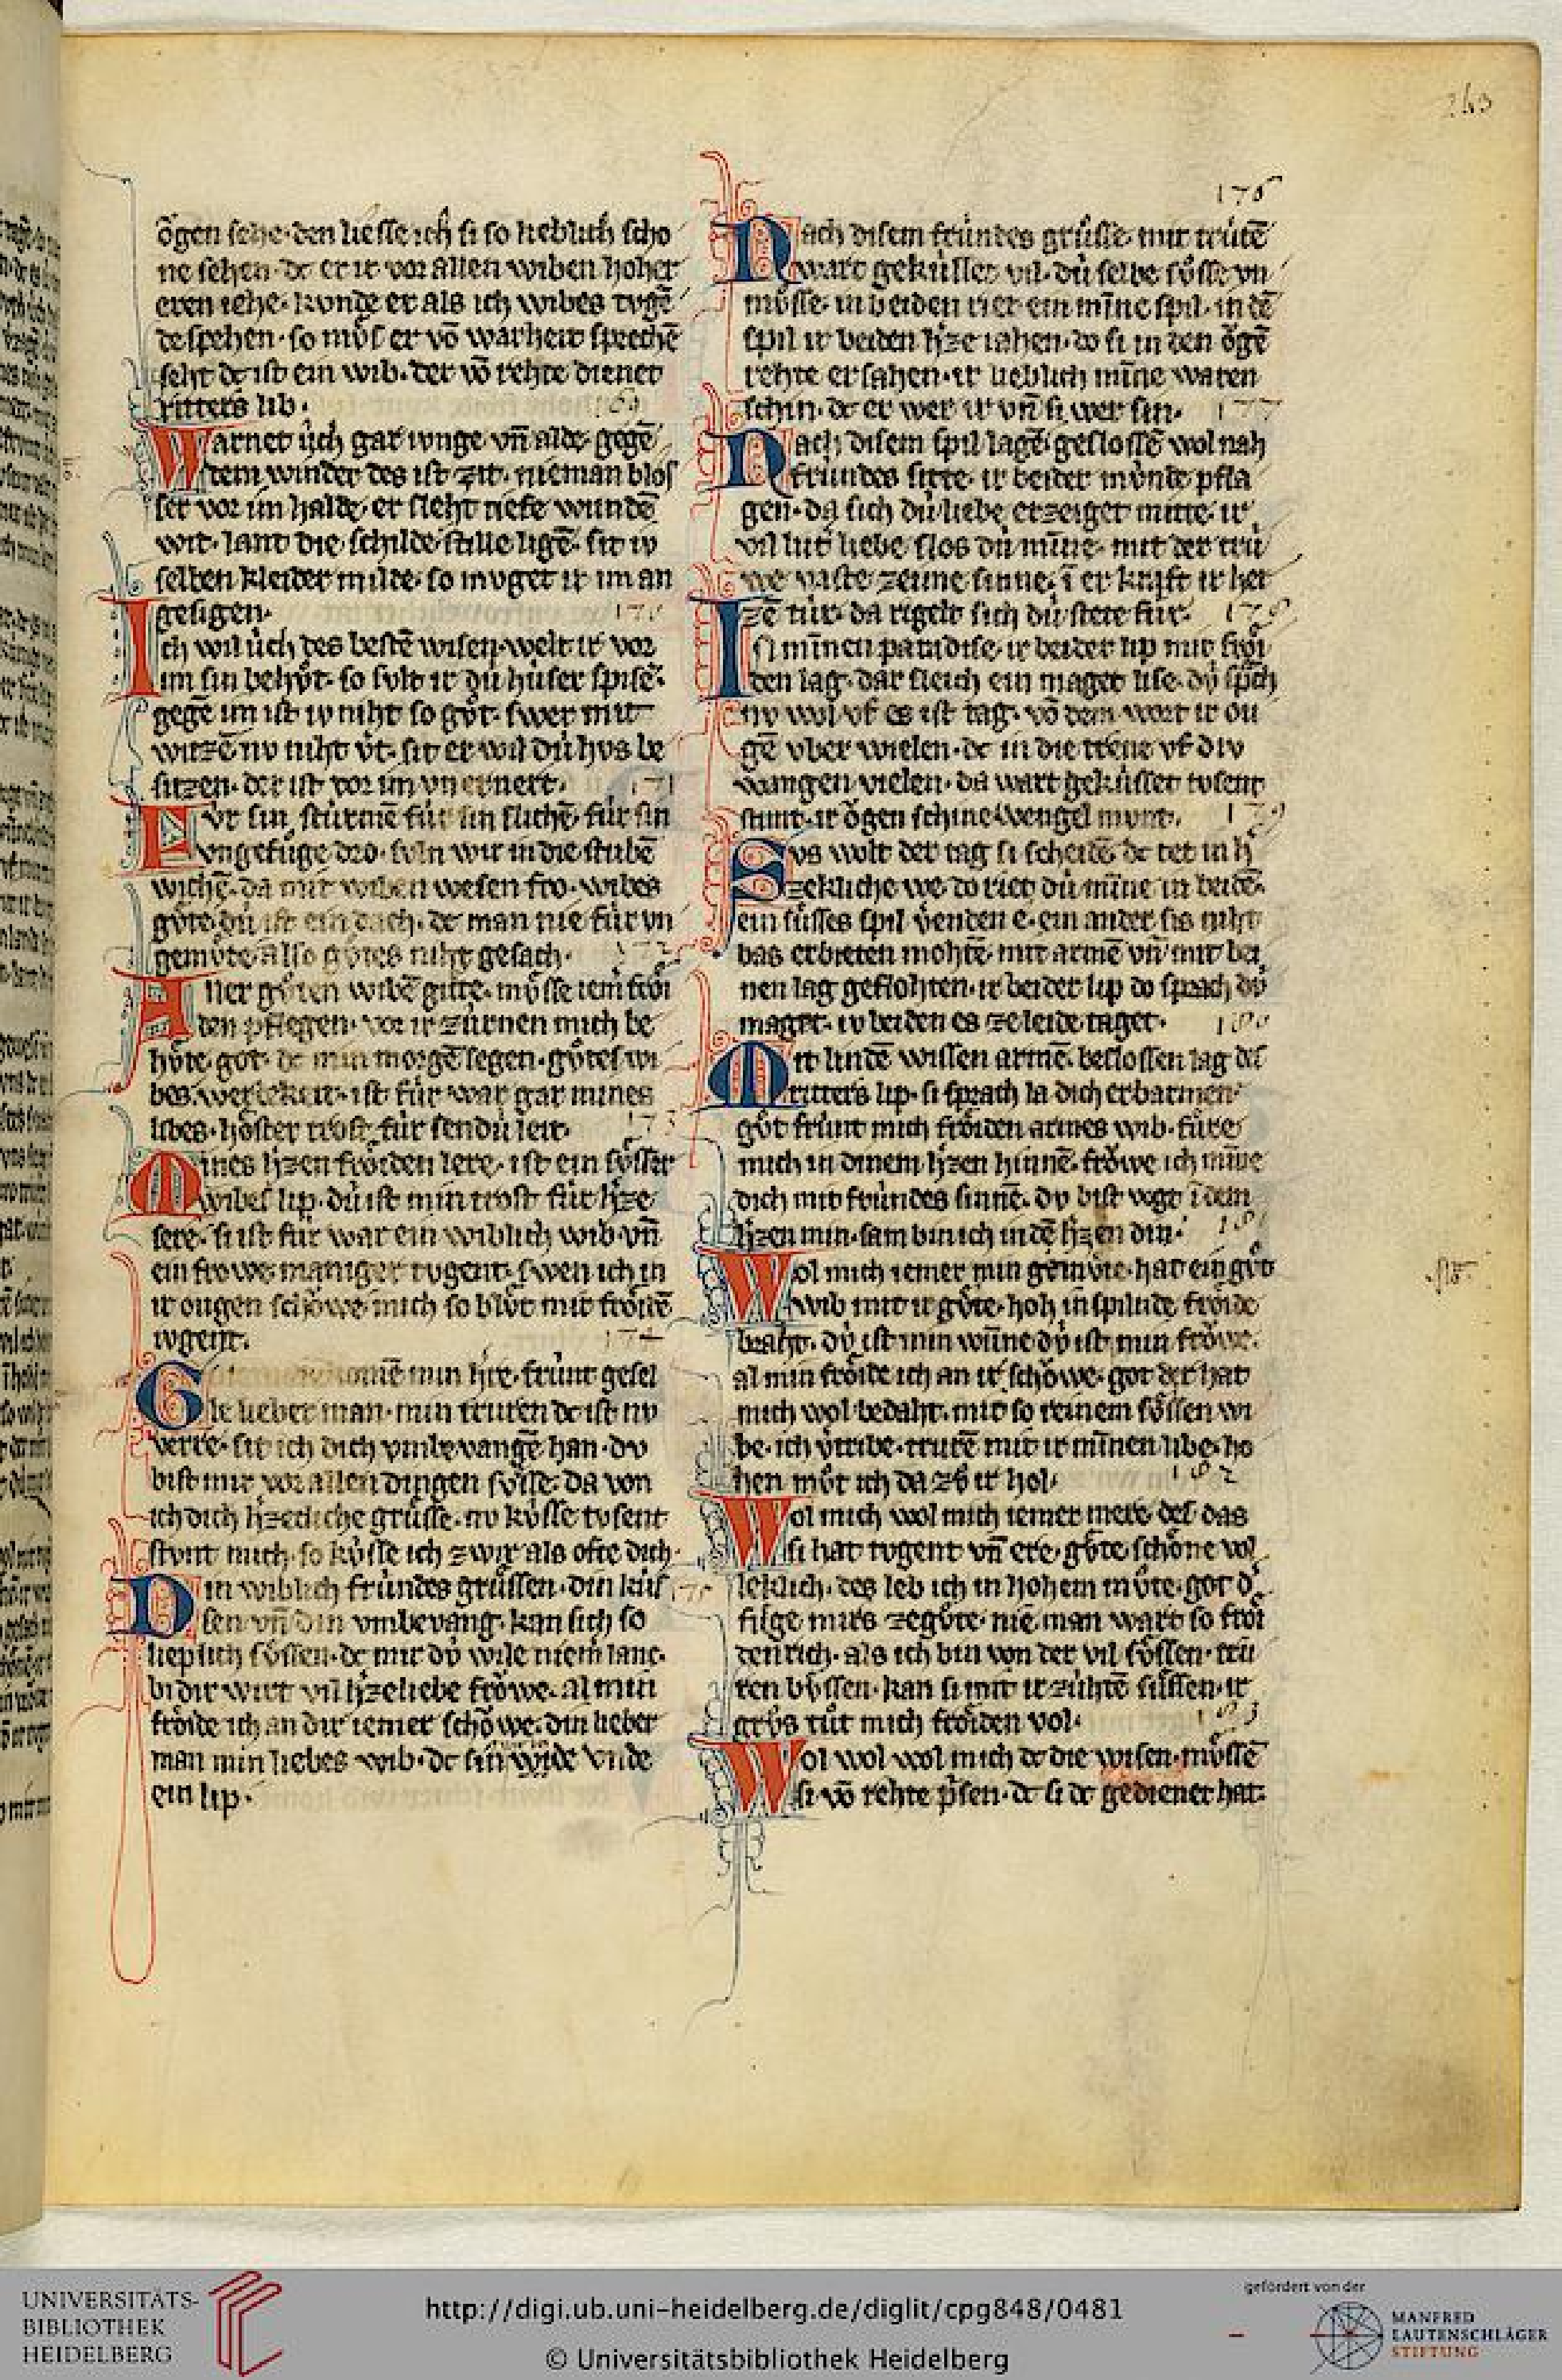 243
ögen sehe·den liesse ich si so lieblich scho
ne sehen·dc er ir vor allen wiben hoher
eren iehe·konde er als ich wibes tvgē
de spehen·so mvͦs er vō warheit sprechē
seht dc ist ein wib·der vō rehte dienet
ritters lib· 169
Warnet v́ch gar ivnge vn̄ alde gegē
dem winder des ist zit·nieman blos
ser vor im halde·er sleht tiefe wundē
wit·lant die schilde stille ligē·sit iv
selben kleider milde·so mvget ir im an
gesigen· 170
Ich wil v́ch des bestē wisen·welt ir vor
im sin behvͦt·so svlt ir dú húser spisē·
gegē im ist iv niht so gvͦt·swer mit
witzē nv niht vͦt·sit er wil dú hvs be
sitzen·der ist vor im vnernert· 171
Fv́r sin stúrmē fúr sin slichē·fúr sin
vngefúge dro·svln wir in die stubē
wichē·da mit wiben wesen fro·wibes
gvͤte·dú ist ein dach·dc man nie fúr vn
gemvͤte also gvͦtes niht gesach· 172
Aller gvͦten wibē gvͤte·mvͤsse iem̄ frói
den pflegen·vor ir zúrnen mich be
hvͤte·got·dc min morgē segen·gvͦtes wi
bes werdekeit·ist fúr war gar mines
libes·hoͤster trost fúr sendú leit· 173
Mines hˀzen froͤiden lere·ist ein svͤsser
wibes lip·dú ist min trost fúr hˀze
sere·si ist fúr war ein wiblich wib·vn̄
ein frowe maniger tvgent·swen ich in
ir ougen schowe·mich so blvͤt mir froͤidē
ivgent· 174
G mē min hˀre·frúnt gesel
le lieber man·min truren dc ist nv
verre·sit ich dich vmbevangē han·dv
bist mir vor allen dingen svͤsse·da von
ich dich hˀzecliche grússe·nv kv́sse tvsent
stvnt mich·so kv́sse ich zwir als ofte dich·
Din wiblich frúndes grússen·din kúſ 175
sen vn̄ din vmbevang·kan sich so
lieplich svͤssen·dc mir dv́ wile niem̄ lanc·
bi dir wirt vil hˀzeliebe frowe·al min
froͤide ich an dir iemer schowe·din lieber
man min liebes wib·dc sin wide vnde
ein lip·
176
Nach disem frúndes grússe·mit trútē
wart gekússet vil·dú selbe svͤsse vn
mvͤsse·in beiden riet ein mīne spil·in dē
spil ir beiden hˀze iahen·do si in den ögē
rehte ersahen·ir lieblich mīne waren
schin·dc er wer ir vn̄ si wer sin· 177
Nach disem spil lagē·geslossē wol nah
frúndes sitte·ir beider mv́nde pfla
gen·da sich dú liebe erzeiget mitte·ir
vil lut liebe slos dú mīne·mit der trú
we vaste zeime sinne·ī er kraft ir her
zē túr·da rigelt sich dú stete fúr· 178
In mīnen paradise·ir beider lip mit froͤi
den lag·dar sleich ein maget lise·dv́ sp̄ch
nv wol vf es ist tag·vō dem wort ir ou
gē vber wielen·dc in die trene vf div
wangen vielen·da wart gekússet tvsent
stunt·ir ögen schine wengel munt· 179
Svs wolt der tag si scheidē·dc tet in hˀ
zekliche we·do riet dú mīne in beidē·
ein súſſes spil v̄enden e·ein ander sis niht
bas erbieten mohtē·mit armē vn̄ mit bei
nen lag geflohten·ir beider lip do sprach dv́
maget·iv beiden es ze leide taget· 180
Mit lindē wissen armē·beslossen lag des
ritters lip·si sprach la dich erbarmen
gvͦt frúnt mich froͤiden armes wib·fúre
mich in dinem hˀzen hinnē·frowe ich mīne
dich mit frúndes sinnē·dv bist vogt ī dem
hˀzen min·sam bin ich in dē hˀzen din· 181
Wol mich iemer min gemvͤte·hat ein gvͦt
wib mit ir gvͤte·hoh in spilnde froͤide
braht·dv́ ist min wūne dv́ ist min frowe·
al min froͤide ich an ir schowe·got der hat
mich wol bedaht·mit so reinem svͤssen wi
be·ich v̄tribe·trurē mit ir mīnen libe·ho
hen mvͦt ich da zvͦ ir hol· 182
Wol mich wol mich iemer mere·des das
si hat tvgent vn̄ ere·gvͤte schoͤne vol
leklich·des leb ich in hohem mvͦte·got d̄
fvͤge mirs zegvͦte·nie man wart so froͤi
den rich·als ich bin von der vil svͤssen·trú
ren bvͤssen·kan si mir ir zúhtē sússen·ir
grvͦs tvͦt mich froͤiden vol· 183
Wol wol wol mich dc die wisen·mvͤssē
si vō rehte p̄sen·dc si dc gedienet hat·
UNIVERSITÄTS-
BIBLIOTHEK
HEIDELBERG
http://digi.ub.uni-heidelberg.de/diglit/cpg848/0481
© Universitätsbibliothek Heidelberg
gefördert von der
MANFRED
LAUTENSCHLÄGER
STIFTUNG